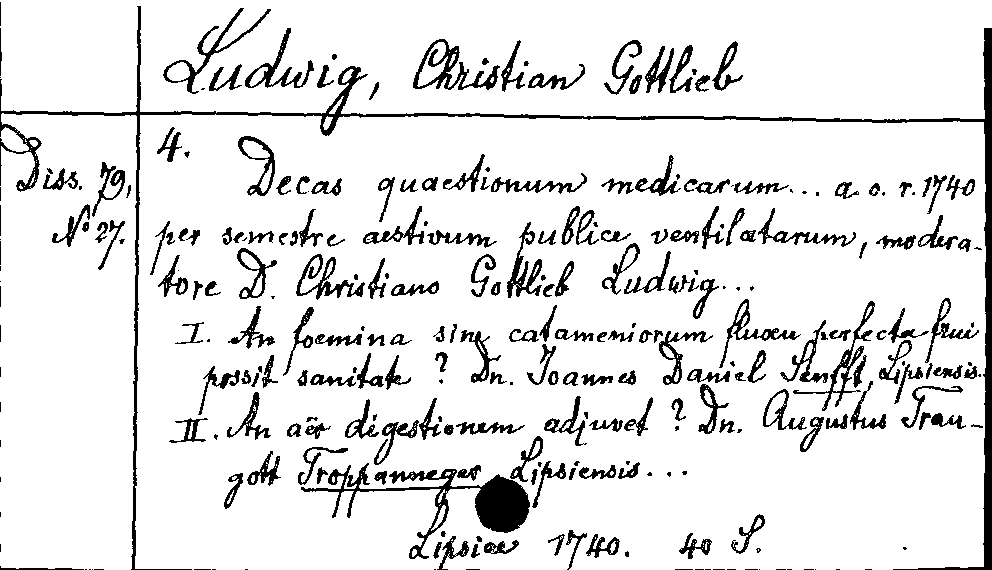 Ludwig, Christian Gottlieb
4.
Diss. 79,
No 27.
Decas quaestionum medicarum... a. o. r. 1740
per semestre aestivum publice ventilatarum, modera-
tore D. Christiano Gottlieb Ludwig...
I. An foemina sine catameniorum fluxu perfecta frui
possit sanitate? Dn. Joannes Daniel Senfft, Lipsiensis.
II. An aër digestionem adjuvet? Dn. Augustus Trau-
gott Troppanneger Lipsiensis...
Lipsiae 1740. 40 S.